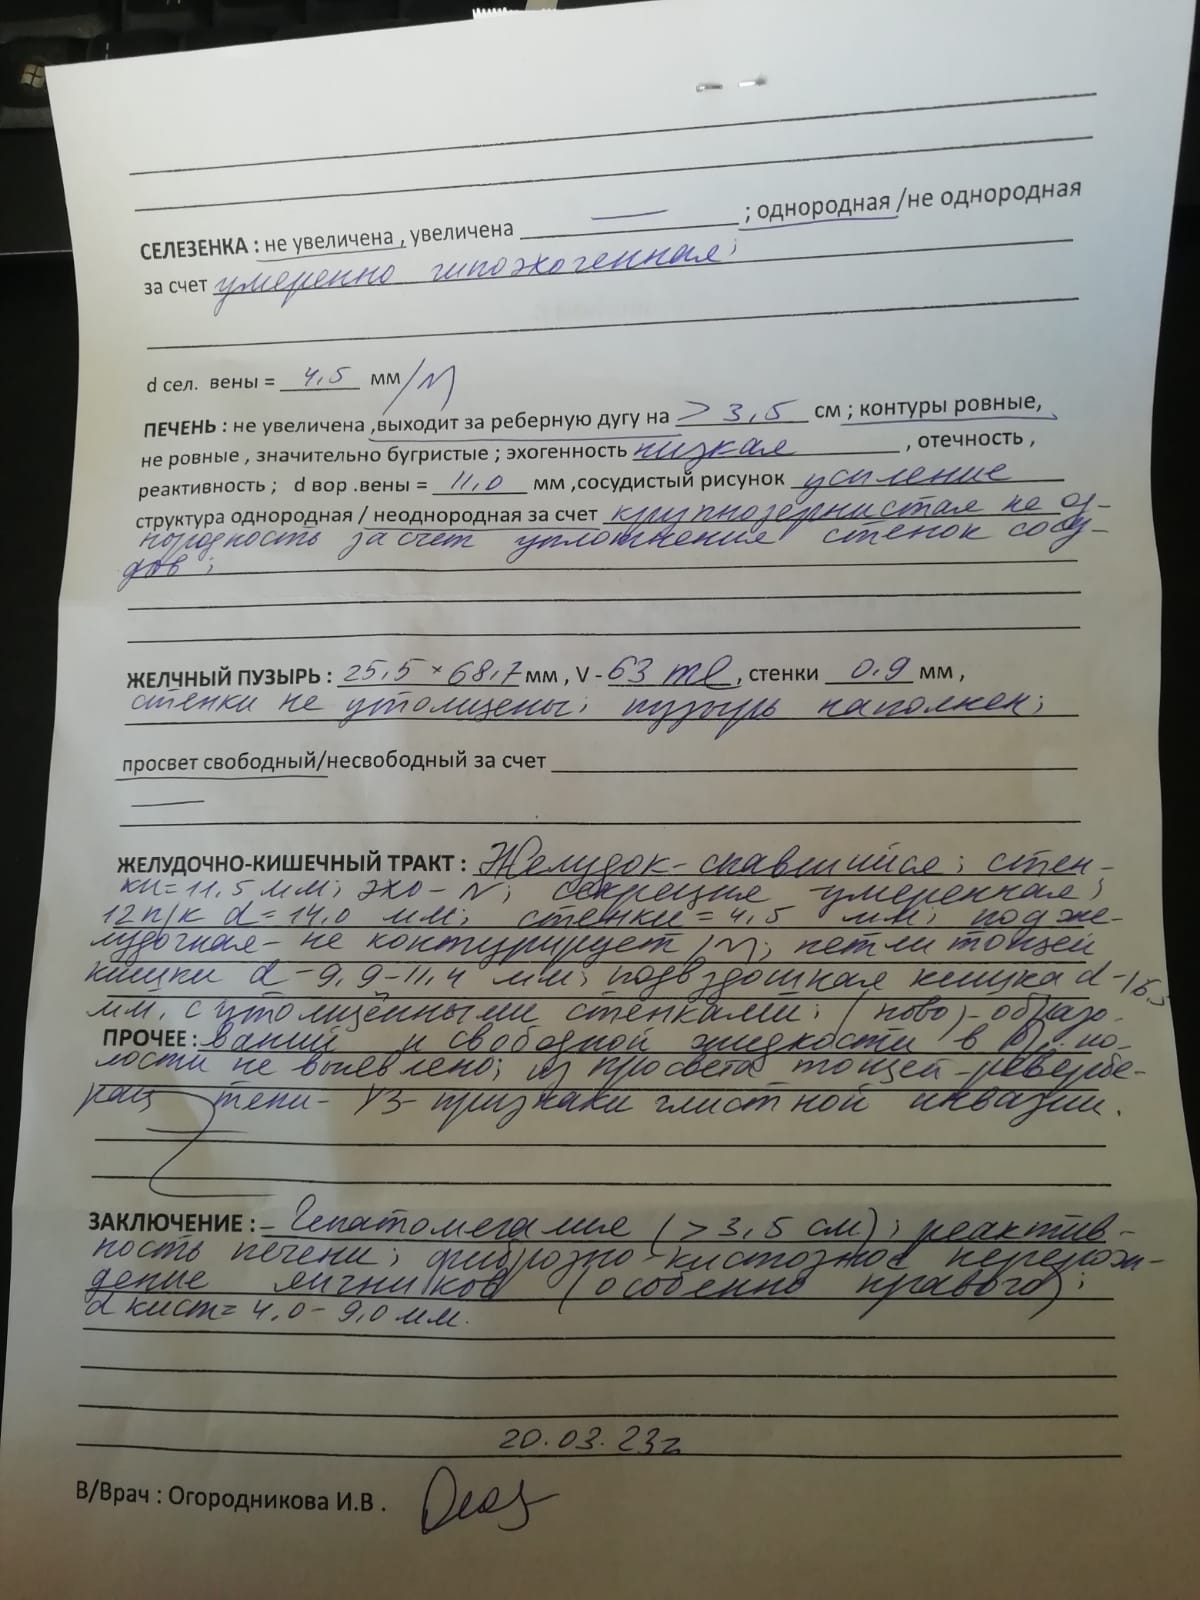 СЕЛЕЗЕНКА : не увеличена , увеличена — ; однородная /не однородная
за счет умеренно гипоэхогенная;
d сел. вены = 4,5 мм/N
ПЕЧЕНЬ : не увеличена ,выходит за реберную дугу на > 3,5 см ; контуры ровные,
не ровные , значительно бугристые ; эхогенность низкая , отечность ,
реактивность ; d вор .вены = 11,0 мм ,сосудистый рисунок усиление
структура однородная / неоднородная за счет крупнозернистая не од-
нородность за счет уплотнения стенок сосу-
дов ;
ЖЕЛЧНЫЙ ПУЗЫРЬ : 25,5 × 68,7 мм , V - 63 ml , стенки 0.9 мм ,
стенки не утолщены; пузырь наполнен;
просвет свободный/несвободный за счет
—
ЖЕЛУДОЧНО-КИШЕЧНЫЙ ТРАКТ : Желудок - спавшийся; стен-
ки = 11,5 мм; эхо - N; секреция умеренная;
12 п/к d = 14,0 мм; стенки = 4,5 мм; подже-
лудочная - не контурирует /N; петли тощей
кишки d - 9,9 - 11,4 мм; подвздошная кишка d - 16,5
мм. с утолщёнными стенками; (ново) - образо-
ПРОЧЕЕ : ваний и свободной жидкости в бр. по-
лости не выявлено; из просвета тощей - ревербе-
рац тени - УЗ - признаки глистной инвазии.
ЗАКЛЮЧЕНИЕ : - Гепатомегалия (> 3,5 см); реактив-
ность печени; фиброзно - кистозное перерож-
дение яичников (особенно правого);
d кист = 4,0 - 9,0 мм.
20.03.23г
В/Врач : Огородникова И.В .